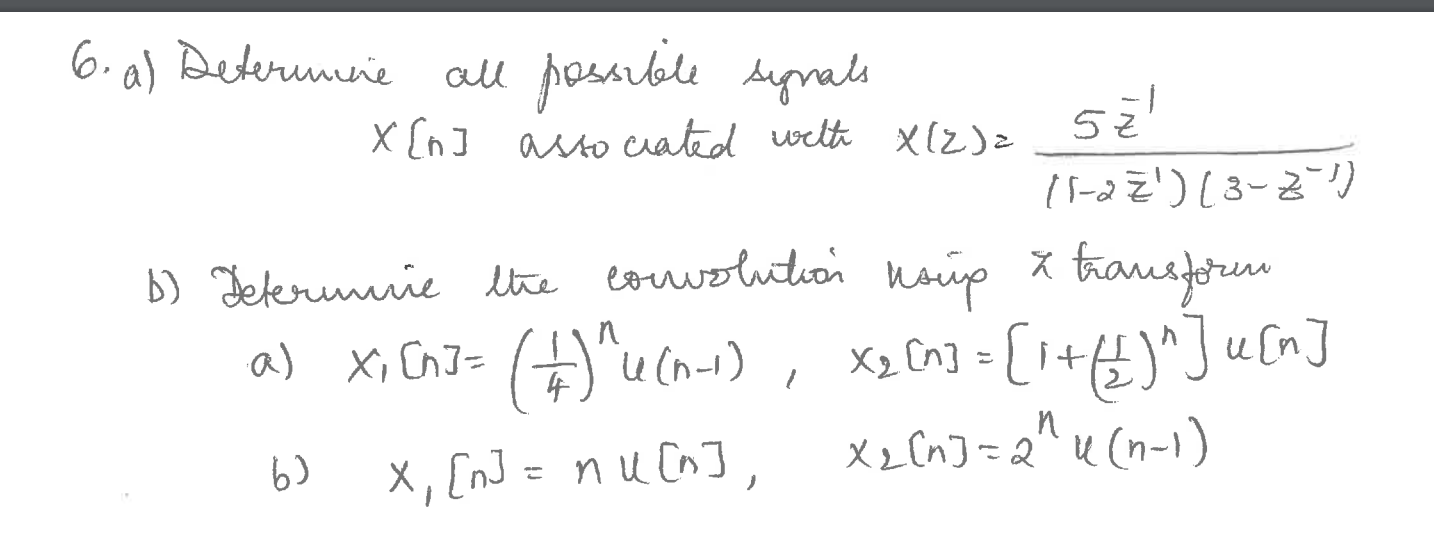 6. a) Determine all possible signals
x[n] associated with X(z) = 5z^-1 / (1-2z^-1)(3-z^-1)
b) Determine the convolution using z transform
a) x₁[n] = (1/4)^n u(n-1) , x₂[n] = [1+(1/2)^n] u[n]
b) x₁[n] = n u[n], x₂[n] = 2^n u(n-1)